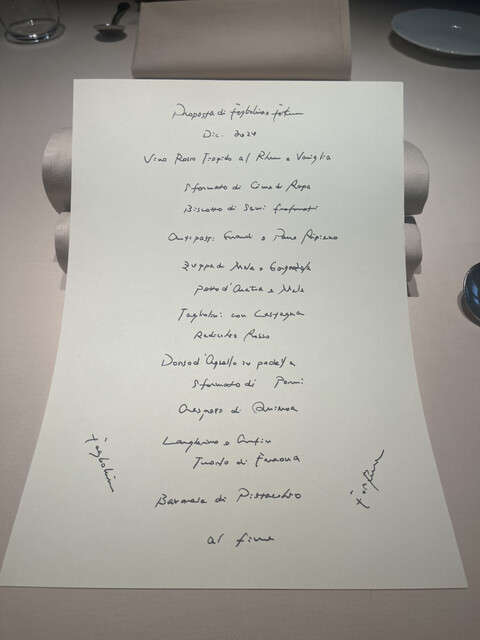 Proposta di
Dic. 2024
Vino Rosso Tiepido al Rhum e Vaniglia
Sformato di Cime di Rapa
Biscotto di Semi
Antipasti e Pane Ripieno
Zuppa di Mele e Gorgonzola
Petto d'Anatra e Mele
Tagliolini con Castagna
Radicchio Rosso
Dorso d'Agnello in padella
Sformato di Porri
Crespelle di Quinoa
e
Tuorlo di Faraona
Bavarese di Pistacchio
al fine